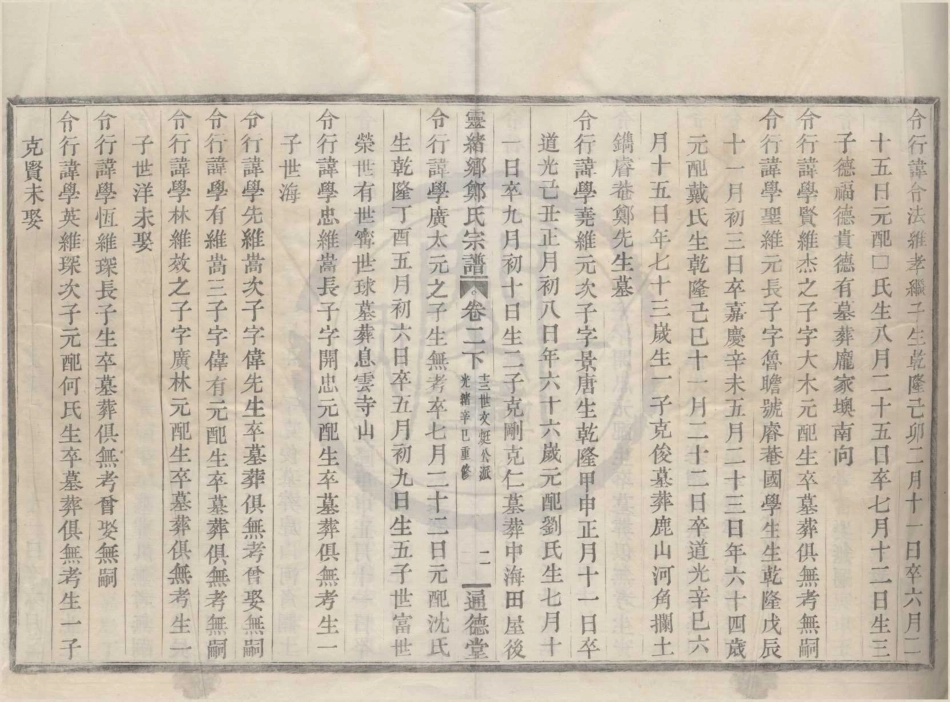 令行諱合法維孝繼子生乾隆己卯二月十一日卒六月二
十五日元配□氏生八月二十五日卒七月十二日生三
子德福德貴德有墓葬龐家墺南向
令行諱學賢維杰之子字大木元配生卒墓葬俱無考無嗣
令行諱學聖維元長子字魯瞻號睿菴國學生生乾隆戊辰
十一月初三日卒嘉慶辛未五月二十三日年六十四歲
元配戴氏生乾隆己巳十一月二十二日卒道光辛巳六
月十五日年七十三歲生一子克俊墓葬鹿山河角攔土
鐫睿菴鄭先生墓
令行諱學堯維元次子字景唐生乾隆甲申正月十一日卒
道光己丑正月初八日年六十六歲元配劉氏生七月十
一日卒九月初十日生二子克剛克仁墓葬申海田屋後
靈緒鄉鄭氏宗譜 卷二下 十三世文挺公派 光緒辛巳重修 二 通德堂
令行諱學廣太元之子生無考卒七月二十二日元配沈氏
生乾隆丁酉五月初六日卒五月初九日生五子世富世
榮世有世寗世球墓葬息雲寺山
令行諱學忠維嵩長子字開忠元配生卒墓葬俱無考生一
子世海
令行諱學先維嵩次子字偉先生卒墓葬俱無考曾娶無嗣
令行諱學有維嵩三子字偉有元配生卒墓葬俱無考無嗣
令行諱學林維效之子字廣林元配生卒墓葬俱無考生一
子世洋未娶
令行諱學恆維琛長子生卒墓葬俱無考曾娶無嗣
令行諱學英維琛次子元配何氏生卒墓葬俱無考生一子
克賢未娶